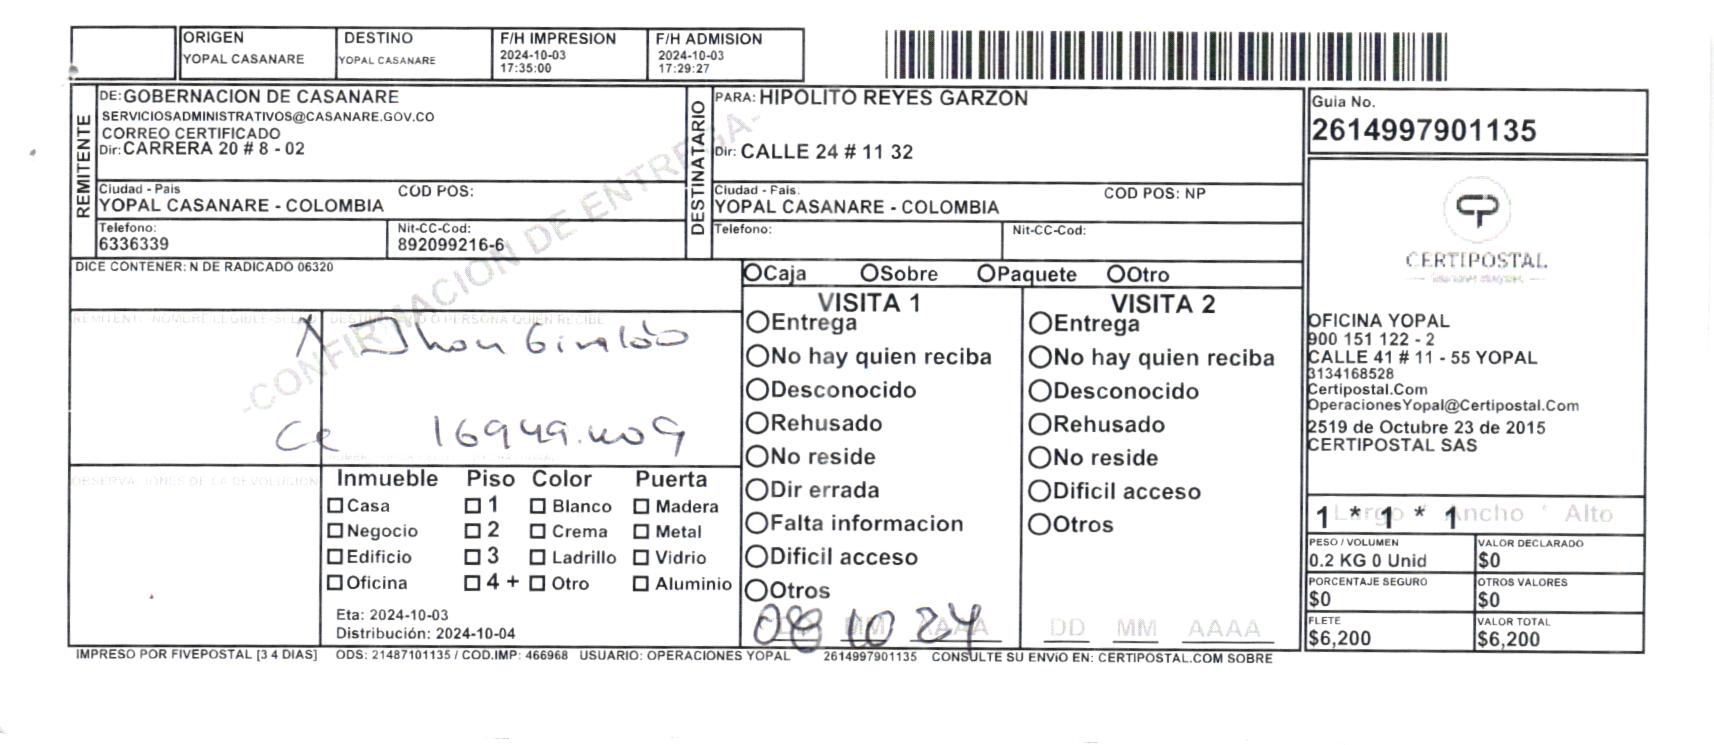 ORIGEN
YOPAL CASANARE
DESTINO
YOPAL CASANARE
F/H IMPRESION
2024-10-03
17:35:00
F/H ADMISION
2024-10-03
17:29:27
REMITENTE
DE:GOBERNACION DE CASANARE
SERVICIOSADMINISTRATIVOS@CASANARE.GOV.CO
CORREO CERTIFICADO
Dir:CARRERA 20 # 8 - 02
Ciudad - Pais
COD POS:
YOPAL CASANARE - COLOMBIA
Telefono:
6336339
Nit-CC-Cod:
892099216-6
DESTINATARIO
PARA: HIPOLITO REYES GARZON
Dir: CALLE 24 # 11 32
Ciudad - Pais:
COD POS: NP
YOPAL CASANARE - COLOMBIA
Telefono:
Nit-CC-Cod:
Guia No.
2614997901135
CERTIPOSTAL
OFICINA YOPAL
900 151 122 - 2
CALLE 41 # 11 - 55 YOPAL
3134168528
Certipostal.Com
OperacionesYopal@Certipostal.Com
2519 de Octubre 23 de 2015
CERTIPOSTAL SAS
-CONFIRMACION DE ENTREGA-
DICE CONTENER: N DE RADICADO 06320
Caja Sobre Paquete Otro
Jhon Giraldo
16949.
OBSERVACIONES DE LA DEVOLUCION
Inmueble Piso Color Puerta
Casa 1 Blanco Madera
Negocio 2 Crema Metal
Edificio 3 Ladrillo Vidrio
Oficina 4 + Otro Aluminio
Eta: 2024-10-03
Distribución: 2024-10-04
VISITA 1
Entrega
No hay quien reciba
Desconocido
Rehusado
No reside
Dir errada
Falta informacion
Dificil acceso
Otros
08 10 24
MM AAAA
VISITA 2
Entrega
No hay quien reciba
Desconocido
Rehusado
No reside
Dificil acceso
Otros
DD MM AAAA
1 * 1 * 1
Largo * Ancho * Alto
PESO / VOLUMEN
0.2 KG 0 Unid
VALOR DECLARADO
$0
PORCENTAJE SEGURO
$0
OTROS VALORES
$0
FLETE
$6,200
VALOR TOTAL
$6,200
IMPRESO POR FIVEPOSTAL [3 4 DIAS] ODS: 21487101135 / COD.IMP: 466968 USUARIO: OPERACIONES YOPAL 2614997901135 CONSULTE SU ENVIO EN: CERTIPOSTAL.COM SOBRE